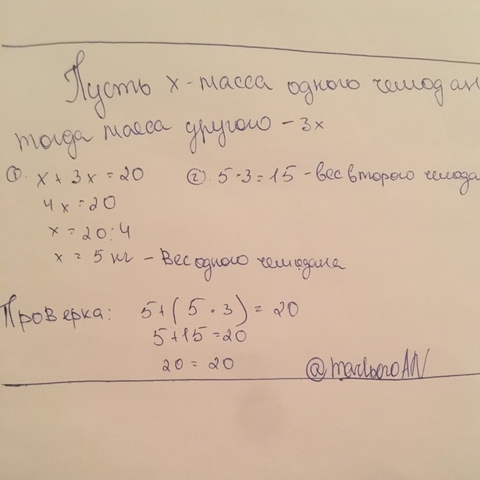 Пусть x - масса одного чемодан
тогда масса другого - 3x
1). x + 3x = 20
4x = 20
x = 20:4
x = 5 кг - Вес одного чемодана
2). 5·3 = 15 - вес второго чемода
Проверка: 5+(5·3) = 20
5+15=20
20 = 20
@marlboroAN